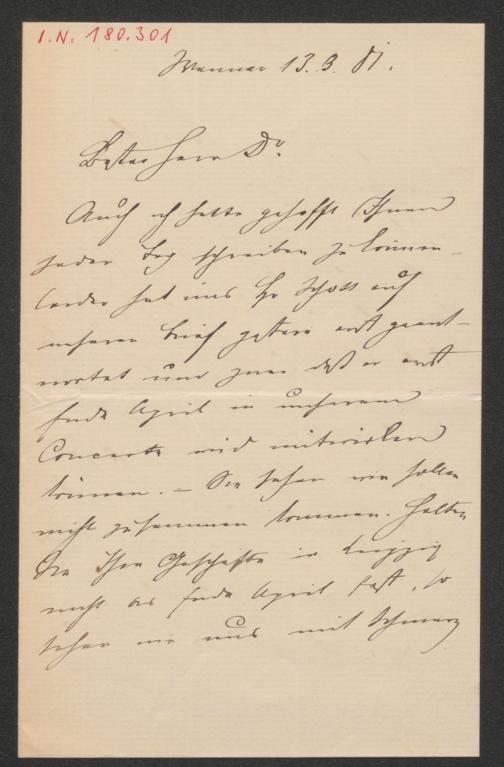 I.N. 180.301
Weimar 13.3.81.
Bester Herr Dr.
Auch ich hatte gehofft Ihnen
jeden Tag schreiben zu können
leider hat uns Hr Schott auf
unseren Brief gestern erst geant-
wortet und zwar daß er erst
Ende April in unserem
Concerte wird mitwirken
können. – Sie sehen wir sollen
nicht zusammen kommen. Halten
Sie Ihre Geschäfte in Leipzig
nicht bis Ende April fest, so
sehen wir uns mit Schmerz